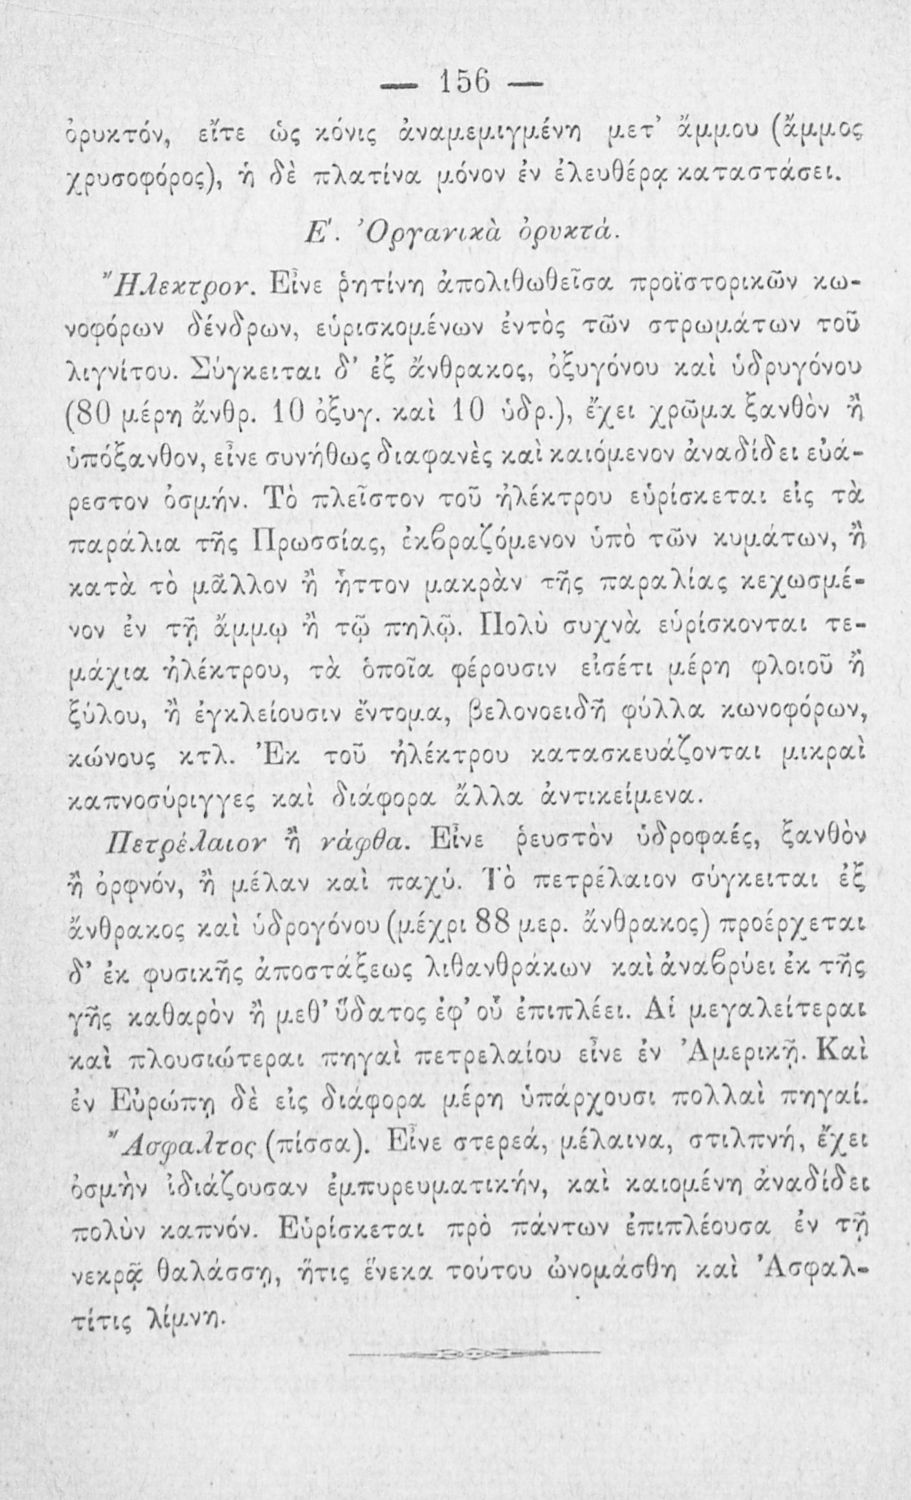 — 156 —
ὀρυκτόν, εἴτε ὡς κόνις ἀναμεμιγμένη μετ' ἄμμου (ἄμμος
χρυσοφόρος), ἡ δὲ πλατίνα μόνον ἐν ἐλευθέρᾳ καταστάσει.
Ε'. Ὀργανικὰ ὀρυκτά.
Ἤλεκτρον. Εἶνε ῥητίνη ἀπολιθωθεῖσα προϊστορικῶν κω-
νοφόρων δένδρων, εὑρισκομένων ἐντὸς τῶν στρωμάτων τοῦ
λιγνίτου. Σύγκειται δ' ἐξ ἄνθρακος, ὀξυγόνου καὶ ὑδρυγόνου
(80 μέρη ἄνθρ. 10 ὀξυγ. καὶ 10 ὑδρ.), ἔχει χρῶμα ξανθὸν ἢ
ὑπόξανθον, εἶνε συνήθως διαφανὲς καὶ καιόμενον ἀναδίδει εὐά-
ρεστον ὀσμήν. Τὸ πλεῖστον τοῦ ἠλέκτρου εὑρίσκεται εἰς τὰ
παράλια τῆς Πρωσσίας, ἐκβραζόμενον ὑπὸ τῶν κυμάτων, ἢ
κατὰ τὸ μᾶλλον ἢ ἧττον μακρὰν τῆς παραλίας κεχωσμέ-
νον ἐν τῇ ἄμμῳ ἢ τῷ πηλῷ. Πολὺ συχνὰ εὑρίσκονται τε-
μάχια ἠλέκτρου, τὰ ὁποῖα φέρουσιν εἰσέτι μέρη φλοιοῦ ἢ
ξύλου, ἢ ἐγκλείουσιν ἔντομα, βελονοειδῆ φύλλα κωνοφόρων,
κώνους κτλ. Ἐκ τοῦ ἠλέκτρου κατασκευάζονται μικραὶ
καπνοσύριγγες καὶ διάφορα ἄλλα ἀντικείμενα.
Πετρέλαιον ἢ νάφθα. Εἶνε ῥευστὸν ὑδροφαές, ξανθὸν
ἢ ὀρφνόν, ἢ μέλαν καὶ παχύ. Τὸ πετρέλαιον σύγκειται ἐξ
ἄνθρακος καὶ ὑδρογόνου (μέχρι 88 μερ. ἄνθρακος) προέρχεται
δ' ἐκ φυσικῆς ἀποστάξεως λιθανθράκων καὶ ἀναβρύει ἐκ τῆς
γῆς καθαρὸν ἢ μεθ' ὕδατος ἐφ' οὗ ἐπιπλέει. Αἱ μεγαλείτεραι
καὶ πλουσιώτεραι πηγαὶ πετρελαίου εἶνε ἐν Ἀμερικῇ. Καὶ
ἐν Εὐρώπῃ δὲ εἰς διάφορα μέρη ὑπάρχουσι πολλαὶ πηγαί.
Ἄσφαλτος (πίσσα). Εἶνε στερεά, μέλαινα, στιλπνή, ἔχει
ὀσμὴν ἰδιάζουσαν ἐμπυρευματικήν, καὶ καιομένη ἀναδίδει
πολὺν καπνόν. Εὑρίσκεται πρὸ πάντων ἐπιπλέουσα ἐν τῇ
νεκρᾷ θαλάσσῃ, ἥτις ἕνεκα τούτου ὠνομάσθη καὶ Ἀσφαλ-
τίτις λίμνη.